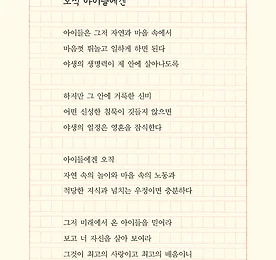 오직 아이들에겐
아이들은 그저 자연과 마을 속에서
마음껏 뛰놀고 일하게 하면 된다
야생의 생명력이 제 안에 살아나도록
하지만 그 안에 거룩한 신비
어떤 신성한 침묵이 깃들지 않으면
야생의 열정은 영혼을 잠식한다
아이들에겐 오직
자연 속의 놀이와 마을 속의 노동과
적당한 지식과 넘치는 우정이면 충분하다
그저 미래에서 온 아이들을 믿어라
보고 너 자신을 살아 보여라
그것이 최고의 사랑이고 최고의 배움이니